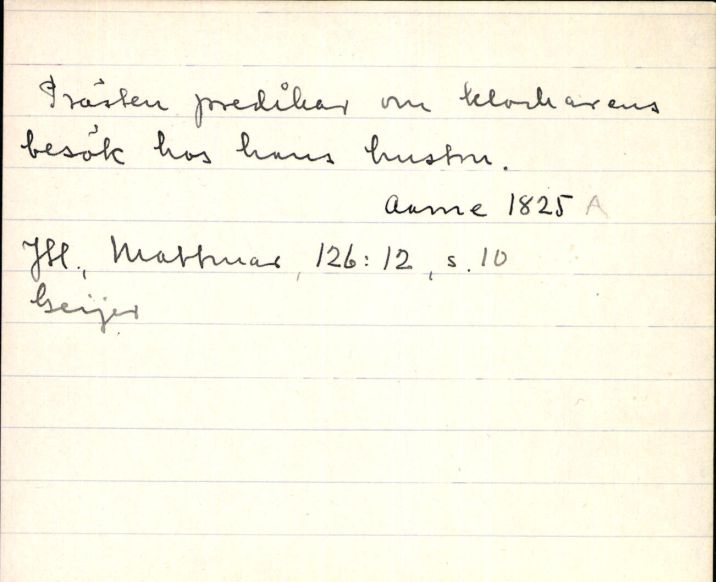 Prästen predikar om klockarens
besök hos hans hustru.
Aarne 1825 A
Jtl., Mattmar, 126:12, s. 10
Geijer